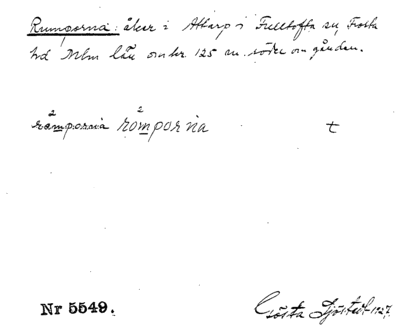 Rumporna: åker i Attarp i Fulltofta sn, Frosta
hd Mlm län omkr. 125 m. söder om gården.
2
rå̤mporna
2
rómporna t
Nr 5549.
Gösta Sjöstedt 1927.